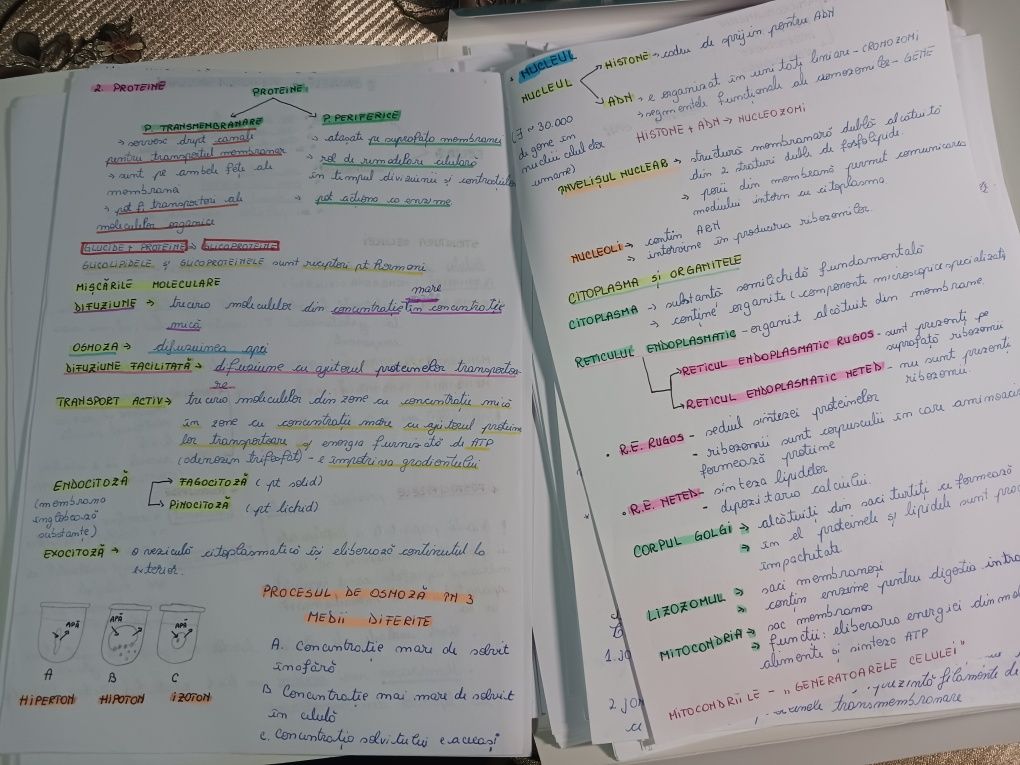 2. PROTEINE
PROTEINE:
P. TRANSMEMBRANARE
→ servesc drept canale
pentru transportul membranar
→ sunt pe ambele fețe ale
membrana
→ pot fi transportori ai
moleculelor organice
P. PERIFERICE
→ atașate pe suprafața membranei
→ rol de remodelare celulară
în timpul diviziunii și contracțiilor
→ pot acționa ca enzime
GLUCIDE + PROTEINE → GLICOPROTEINE
GLICOLIPIDELE și GLICOPROTEINELE sunt receptori pt hormoni
MIȘCĂRILE MOLECULARE
DIFUZIUNE → trecerea moleculelor din concentrație mare în concentrație
mică
OSMOZA → difuziunea apei
DIFUZIUNE FACILITATĂ → difuziune cu ajutorul proteinelor transportoa-
re.
TRANSPORT ACTIV → trecerea moleculelor din zone cu concentrație mică
în zone cu concentrații mare cu ajutorul proteine
lor transportoare și energia furnizată de ATP
(adenozin trifosfat) - e împotriva gradientului
ENDOCITOZĂ
(membrana
înglobează
substanțe)
FAGOCITOZĂ (pt solid)
PINOCITOZĂ (pt lichid)
EXOCITOZĂ → o veziculă citoplasmatică își eliberează conținutul la
exterior.
APĂ
APĂ
APĂ
A B C
HIPERTON HIPOTON IZOTON
PROCESUL DE OSMOZĂ ÎN 3
MEDII DIFERITE
A. Concentrație mare de solvit
înafără
B Concentrație mai mare de solvit
în celulă
C. Concentrația solvitului e aceeași
NUCLEUL
NUCLEUL
HISTONE → cadru de sprijin pentru ADN
ADN → e organizat în unități liniare - CROMOZOMI
→ segmentele funcționale ale cromozomilor - GENE
(∃ ≈ 30.000
de gene în
nucleii celulelor
umane)
HISTONE + ADN → NUCLEOZOMI
ÎNVELIȘUL NUCLEAR → structură membranară dublă alcătuită
din 2 straturi duble de fosfolipide.
→ porii din membrană permit comunicarea
mediului intern cu citoplasma
NUCLEOLI → conțin ARN
→ intervine în producerea ribozomilor.
CITOPLASMA și ORGANITELE
CITOPLASMA → substanță semilichidă fundamentală
→ conține organite (componente microscopice specializate
RETICULUL ENDOPLASMATIC - organit alcătuit din membrane.
RETICUL ENDOPLASMATIC RUGOS - sunt prezenți pe
suprafață ribozomii
RETICUL ENDOPLASMATIC NETED - nu sunt prezenți
ribozomii.
• R.E. RUGOS - sediul sintezei proteinelor
- ribozomii sunt corpusculii în care aminoaci
formează proteine
• R.E. NETED - sinteza lipidelor
- depozitarea calciului.
CORPUL GOLGI → alcătuiți din saci turtiți ce formează
→ în el proteinele și lipidele sunt pro
împachetate
LIZOZOMUL → saci membranoși
→ conțin enzime pentru digestia intra
MITOCONDRIA → sac membranos
→ funcții: eliberarea energiei din mol
alimente și sinteza ATP
MITOCONDRIILE - „GENERATOARELE CELULEI"
prezintă filamente de
transmembranare
1. jo
2 jon